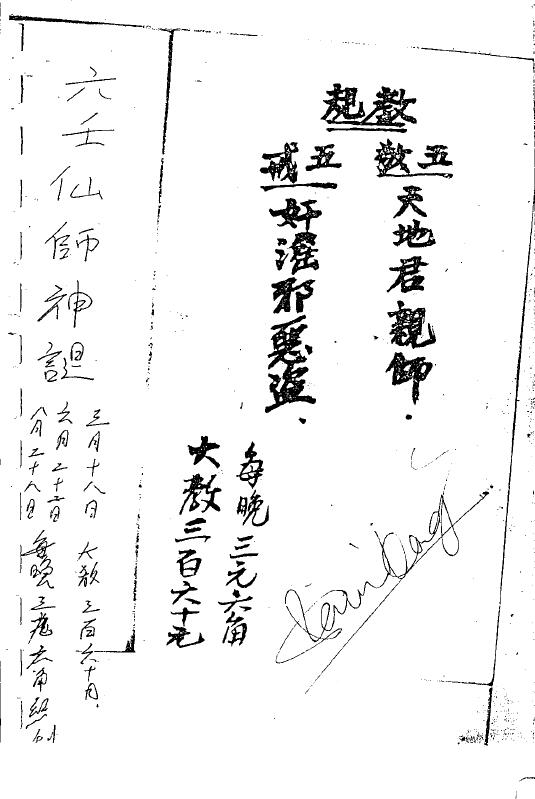 教規
五敬
天地君親師.
五戒
奸淫邪惡盜.
每晚三元六角
大教三百六十元
六壬仙師神誕
三月十八日 大教三百六十
六月二十三日
八月二十八日 每晚三元六角